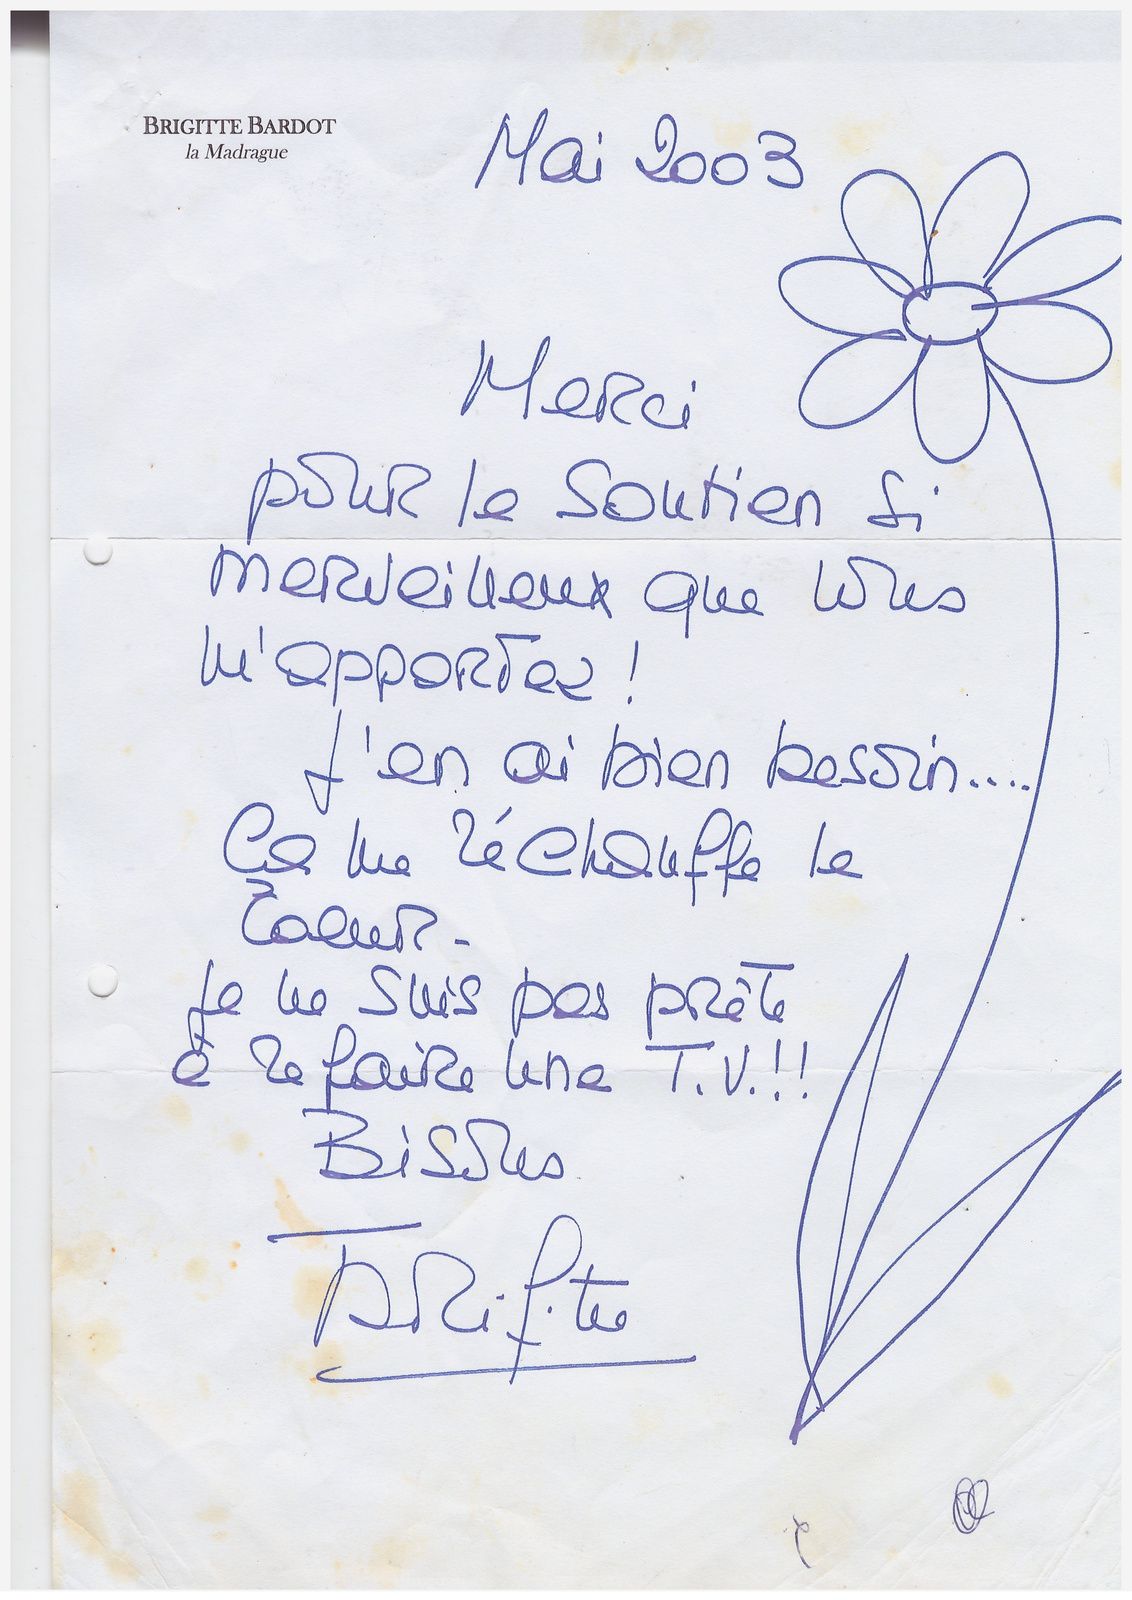 BRIGITTE BARDOT
la Madrague
Mai 2003
Merci
pour le soutien si
merveilleux que vous
m'apportez !
J'en ai bien besoin....
Ça me réchauffe le
Coeur-
Je ne suis pas prête
à refaire une T.V.!!
Bisous
Brigitte